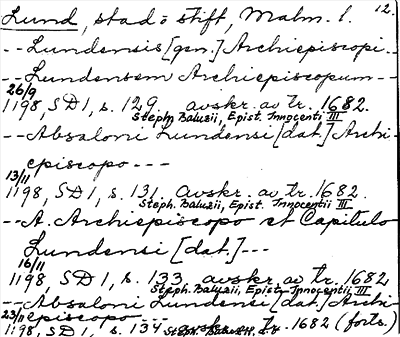 Lund, stad o stift, Malm. l. 12.
-- Lundensis [gen.] Archiepiscopi --
-- Lundensem Archiepiscopum --
26/9
1198, SD1, s. 129. avskr. av tr. 1682.
Steph. Baluzii, Epist. Innocentii III
-- Absaloni Lundensi [dat.] Archi-
episcopo ---
13/11
1198, SD1, s. 131. avskr. av tr. 1682.
Steph. Baluzii, Epist. Innocentii III
-- A. Archiepiscopo et Capitulo
Lundensi [dat.] ---
16/11
1198, SD1, s. 133 avskr. av tr. 1682
Steph. Baluzii, Epist. Innocentii III
-- Absaloni Lundensi [dat.] Archi-
episcopo ---
23/11
1198, SD1, s. 134 avskr. av tr. 1682 (forts.)
Steph. Baluzii